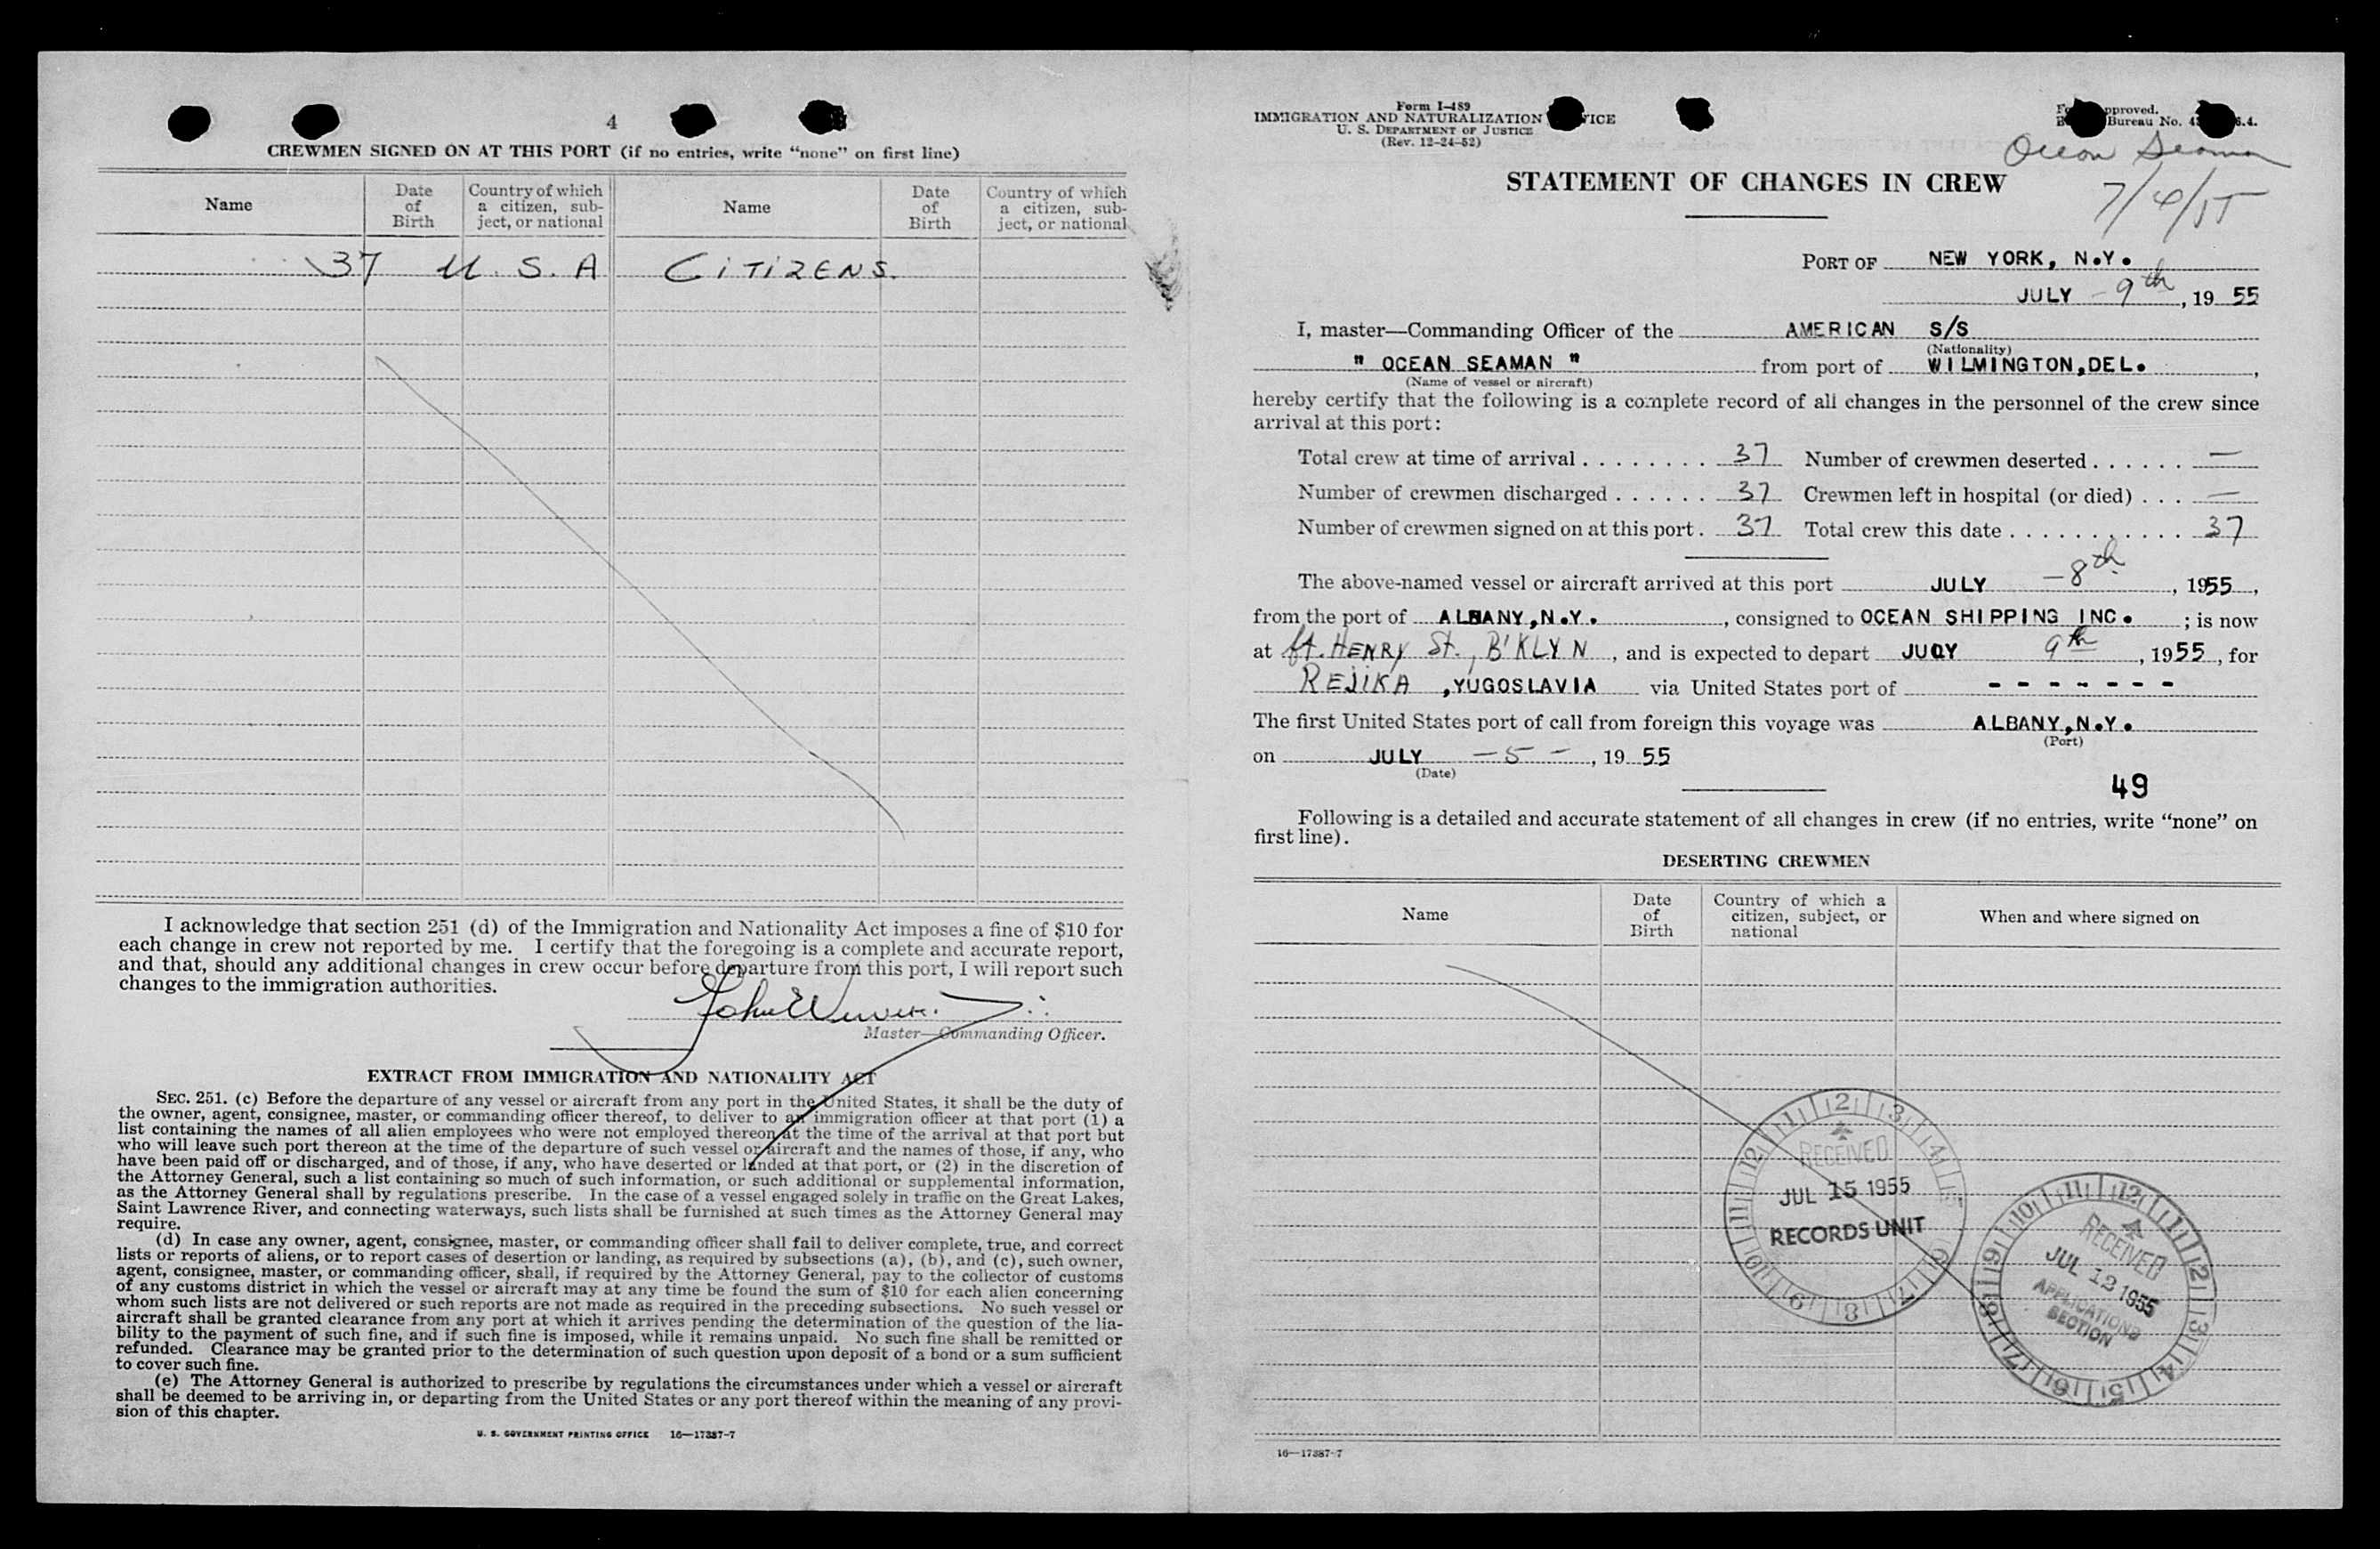 4
CREWMEN SIGNED ON AT THIS PORT (if no entries, write “none” on first line)
Name
Date of Birth
Country of which a citizen, subject, or national
Name
Date of Birth
Country of which a citizen, subject, or national
37 U. S. A CITIZENS.
I acknowledge that section 251 (d) of the Immigration and Nationality Act imposes a fine of $10 for
each change in crew not reported by me. I certify that the foregoing is a complete and accurate report,
and that, should any additional changes in crew occur before departure from this port, I will report such
changes to the immigration authorities.
Master—Commanding Officer.
EXTRACT FROM IMMIGRATION AND NATIONALITY ACT
SEC. 251. (c) Before the departure of any vessel or aircraft from any port in the United States, it shall be the duty of
the owner, agent, consignee, master, or commanding officer thereof, to deliver to an immigration officer at that port (1) a
list containing the names of all alien employees who were not employed thereon at the time of the arrival at that port but
who will leave such port thereon at the time of the departure of such vessel or aircraft and the names of those, if any, who
have been paid off or discharged, and of those, if any, who have deserted or landed at that port, or (2) in the discretion of
the Attorney General, such a list containing so much of such information, or such additional or supplemental information,
as the Attorney General shall by regulations prescribe. In the case of a vessel engaged solely in traffic on the Great Lakes,
Saint Lawrence River, and connecting waterways, such lists shall be furnished at such times as the Attorney General may
require.
(d) In case any owner, agent, consignee, master, or commanding officer shall fail to deliver complete, true, and correct
lists or reports of aliens, or to report cases of desertion or landing, as required by subsections (a), (b), and (c), such owner,
agent, consignee, master, or commanding officer, shall, if required by the Attorney General, pay to the collector of customs
of any customs district in which the vessel or aircraft may at any time be found the sum of $10 for each alien concerning
whom such lists are not delivered or such reports are not made as required in the preceding subsections. No such vessel or
aircraft shall be granted clearance from any port at which it arrives pending the determination of the question of the lia-
bility to the payment of such fine, and if such fine is imposed, while it remains unpaid. No such fine shall be remitted or
refunded. Clearance may be granted prior to the determination of such question upon deposit of a bond or a sum sufficient
to cover such fine.
(e) The Attorney General is authorized to prescribe by regulations the circumstances under which a vessel or aircraft
shall be deemed to be arriving in, or departing from the United States or any port thereof within the meaning of any provi-
sion of this chapter.
U. S. GOVERNMENT PRINTING OFFICE 16—17387-7
Form I-489
IMMIGRATION AND NATURALIZATION
U. S. DEPARTMENT OF JUSTICE
(Rev. 12-24-52)
Bureau No.
Ocean Seaman
7/4/55
STATEMENT OF CHANGES IN CREW
PORT OF NEW YORK, N.Y.
JULY - 9th, 19 55
I, master—Commanding Officer of the AMERICAN S/S
(Nationality)
" OCEAN SEAMAN " from port of WILMINGTON,DEL. ,
(Name of vessel or aircraft)
hereby certify that the following is a complete record of all changes in the personnel of the crew since
arrival at this port:
Total crew at time of arrival . . . . . . . . 37 Number of crewmen deserted . . . . . . —
Number of crewmen discharged . . . . . . 37 Crewmen left in hospital (or died) . . . —
Number of crewmen signed on at this port . 37 Total crew this date . . . . . . . . . . . 37
The above-named vessel or aircraft arrived at this port JULY - 8th, 1955,
from the port of ALBANY,N.Y. , consigned to OCEAN SHIPPING INC. ; is now
at ft. HENRY St., B'KLYN , and is expected to depart JULY 9th, 1955, for
REJIKA ,YUGOSLAVIA via United States port of - - - - - - -
The first United States port of call from foreign this voyage was ALBANY,N.Y.
(Port)
on JULY - 5 - , 19 55
(Date)
49
Following is a detailed and accurate statement of all changes in crew (if no entries, write “none” on
first line).
DESERTING CREWMEN
Name
Date of Birth
Country of which a citizen, subject, or national
When and where signed on
RECEIVED
JUL 15 1955
RECORDS UNIT
RECEIVED
JUL 12 1955
APPLICATIONS
SECTION
16—17387-7